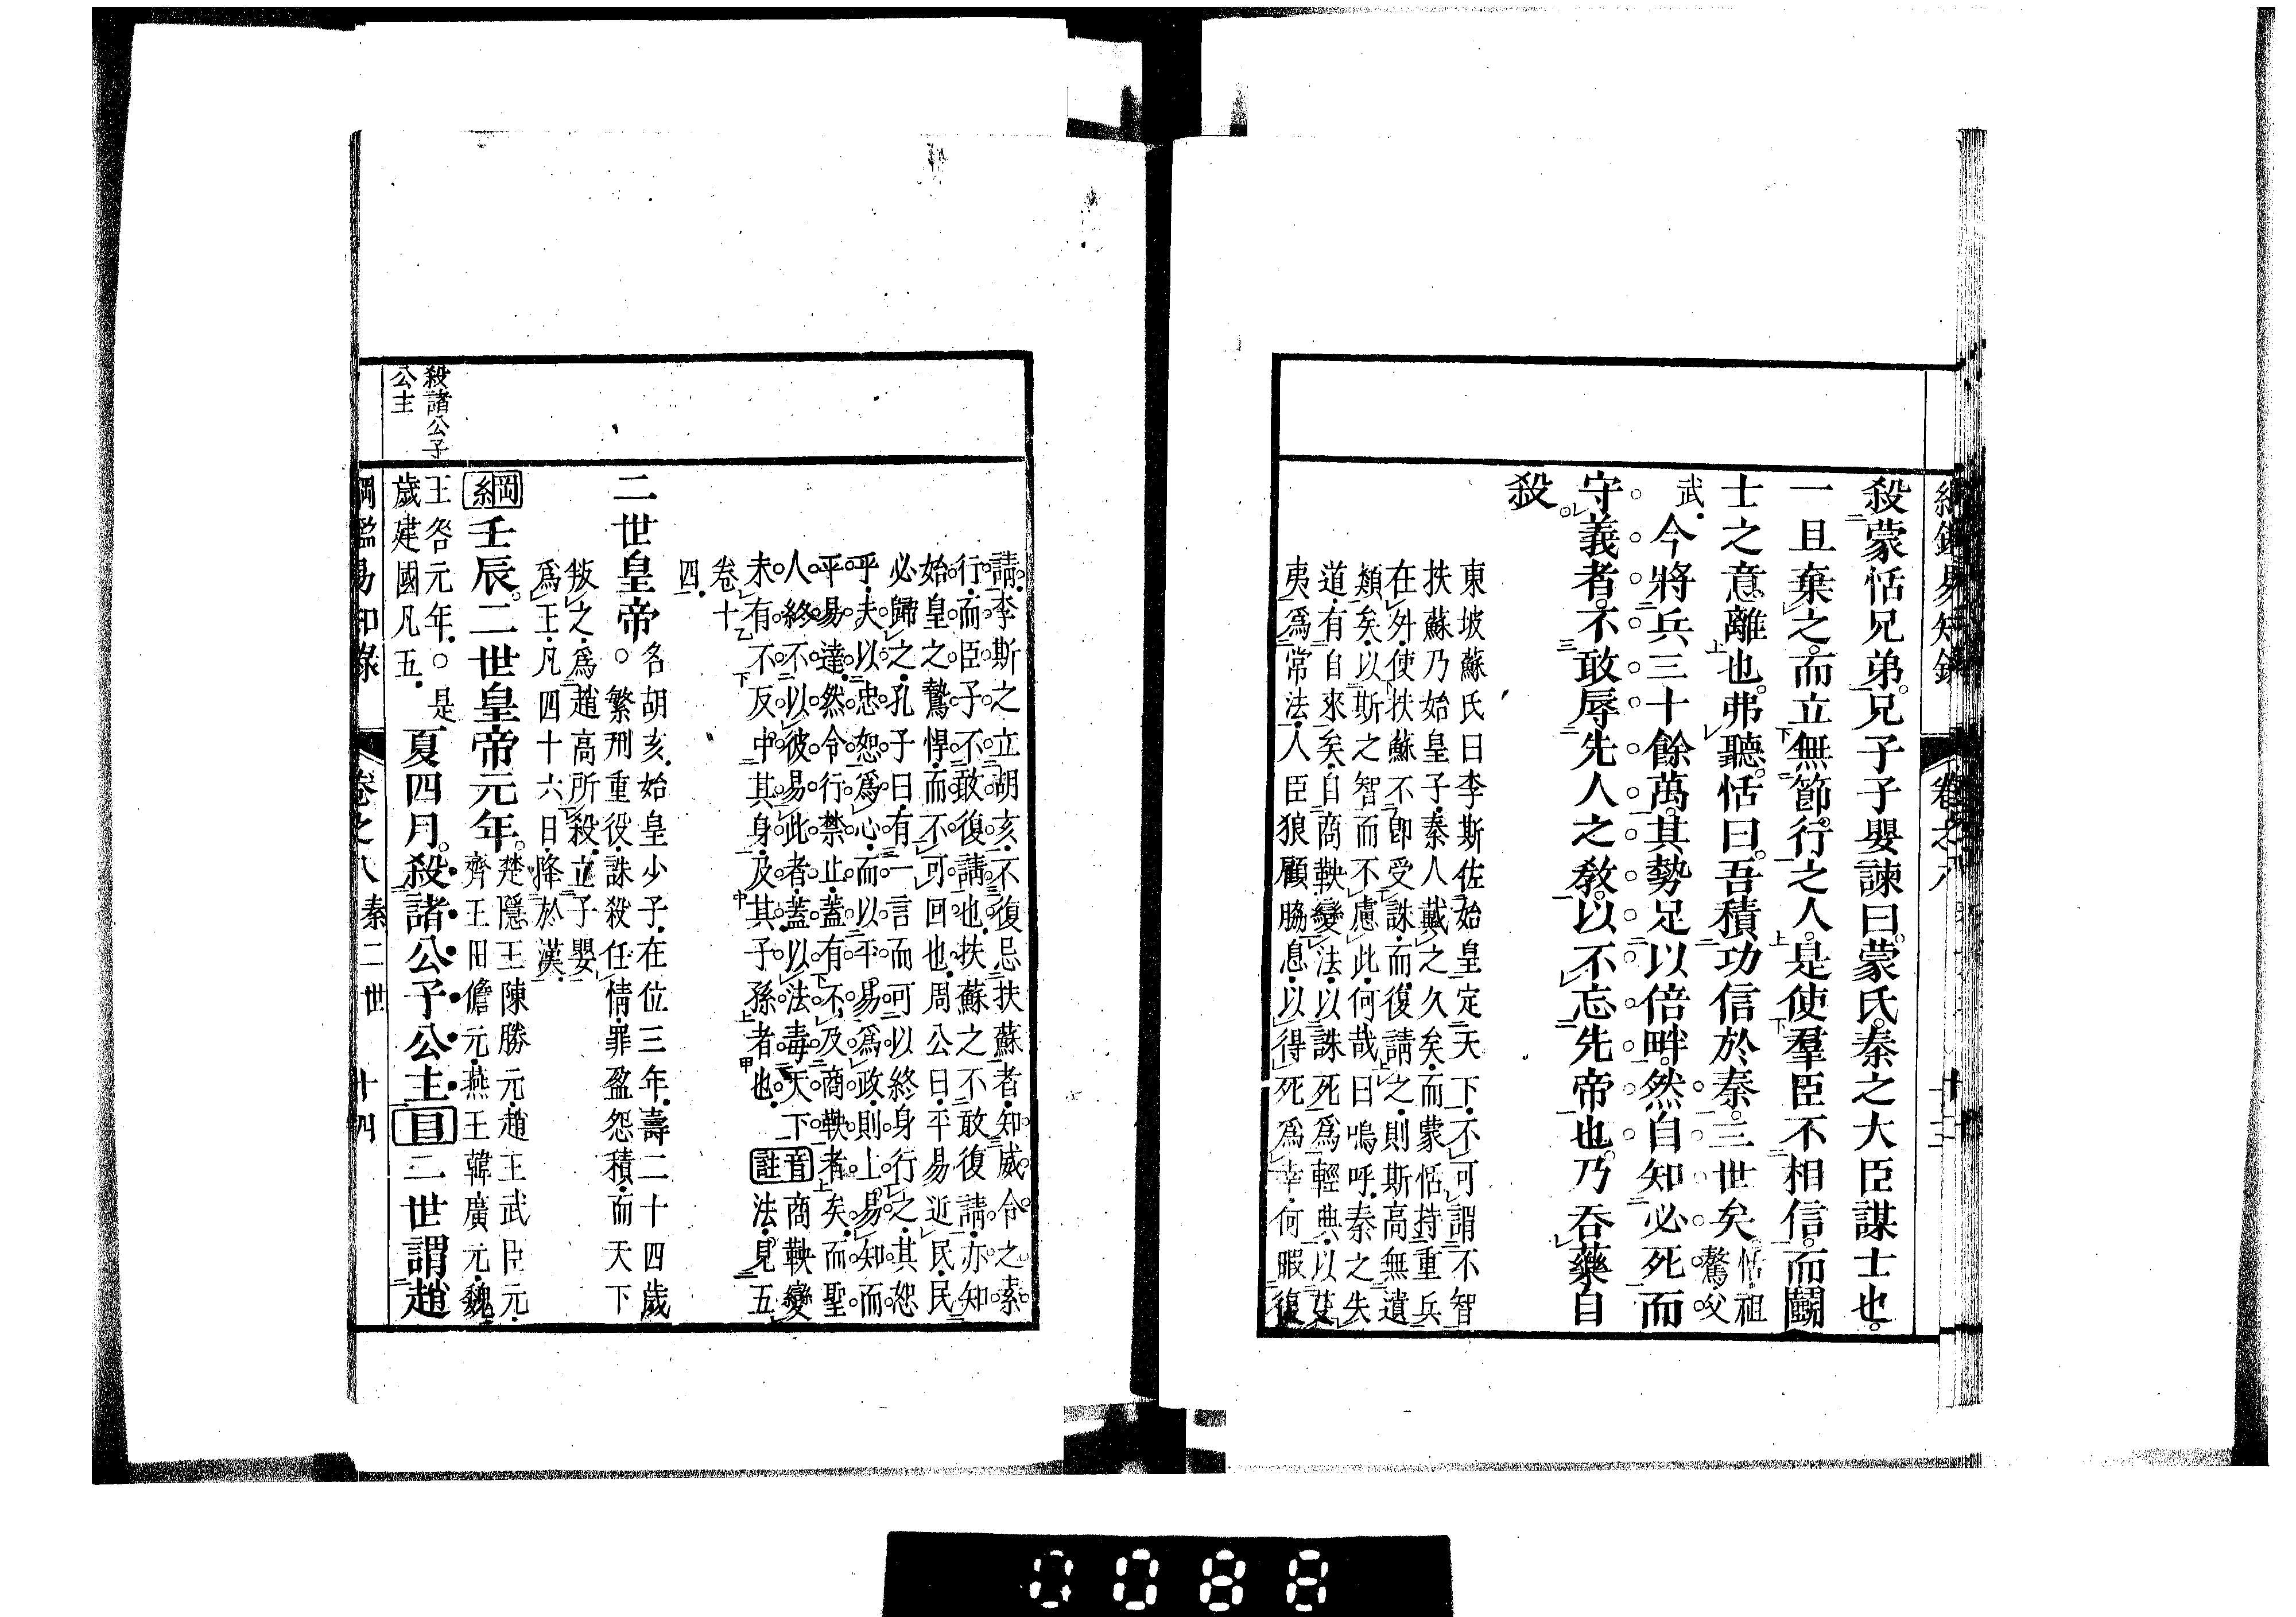 綱鑑易知錄 卷之八 十三
殺蒙恬兄弟。兄子子嬰諫曰。蒙氏。秦之大臣謀士也。
一旦棄之。而立無節行之人。是使羣臣不相信。而鬬
士之意離也。弗聽。恬曰。吾積功信於秦。三世矣。恬祖驁父
武。今將兵三十餘萬。其勢足以倍畔。然自知必死而
守義者。不敢辱先人之敎。以不忘先帝也。乃吞藥自
殺。
東坡蘇氏曰李斯佐始皇定天下。不可謂不智
扶蘇乃始皇子。秦人戴之久矣。而蒙恬持重兵
在外。使扶蘇不卽受誅。而復請之。則斯高無遺
類矣。以斯之智而不慮此。何哉曰嗚呼。秦之失
道。有自來矣。自商鞅變法。以誅死爲輕典。以參
夷爲常法。人臣狼顧脇息。以得死爲幸。何暇復
請。李斯之立胡亥。不復忌扶蘇者。知威令之素
行。而臣子不敢復請也。扶蘇之不敢復請。亦知
始皇之鷙悍。而不可回也。周公曰。平易近民。民
必歸之。孔子曰。有一言而可以終身行之。其恕
乎。夫以忠恕爲心。而以平易爲政。則上易知。而
下易達。然令行禁止。蓋有不及商鞅者矣。而聖
人終不以彼易此者。蓋以法毒天下
未有不反中其身。及其子孫者也。音註商鞅變法。見五
卷十
四。
二世皇帝。名胡亥。始皇少子。在位三年。壽二十四歲
○繁刑重役。誅殺任情。罪盈怨積。而天下
叛之。爲趙高所殺。立子嬰
爲王。凡四十六日。降於漢。
綱壬辰。二世皇帝元年。楚隱王陳勝元。趙王武臣元。
齊王田儋元。燕王韓廣元。魏
王咎元年。○是
歲建國凡五。夏四月。殺諸公子公主目二世謂趙
殺諸公子
公主
綱鑑易知錄 卷之八 秦二世 十四
0088